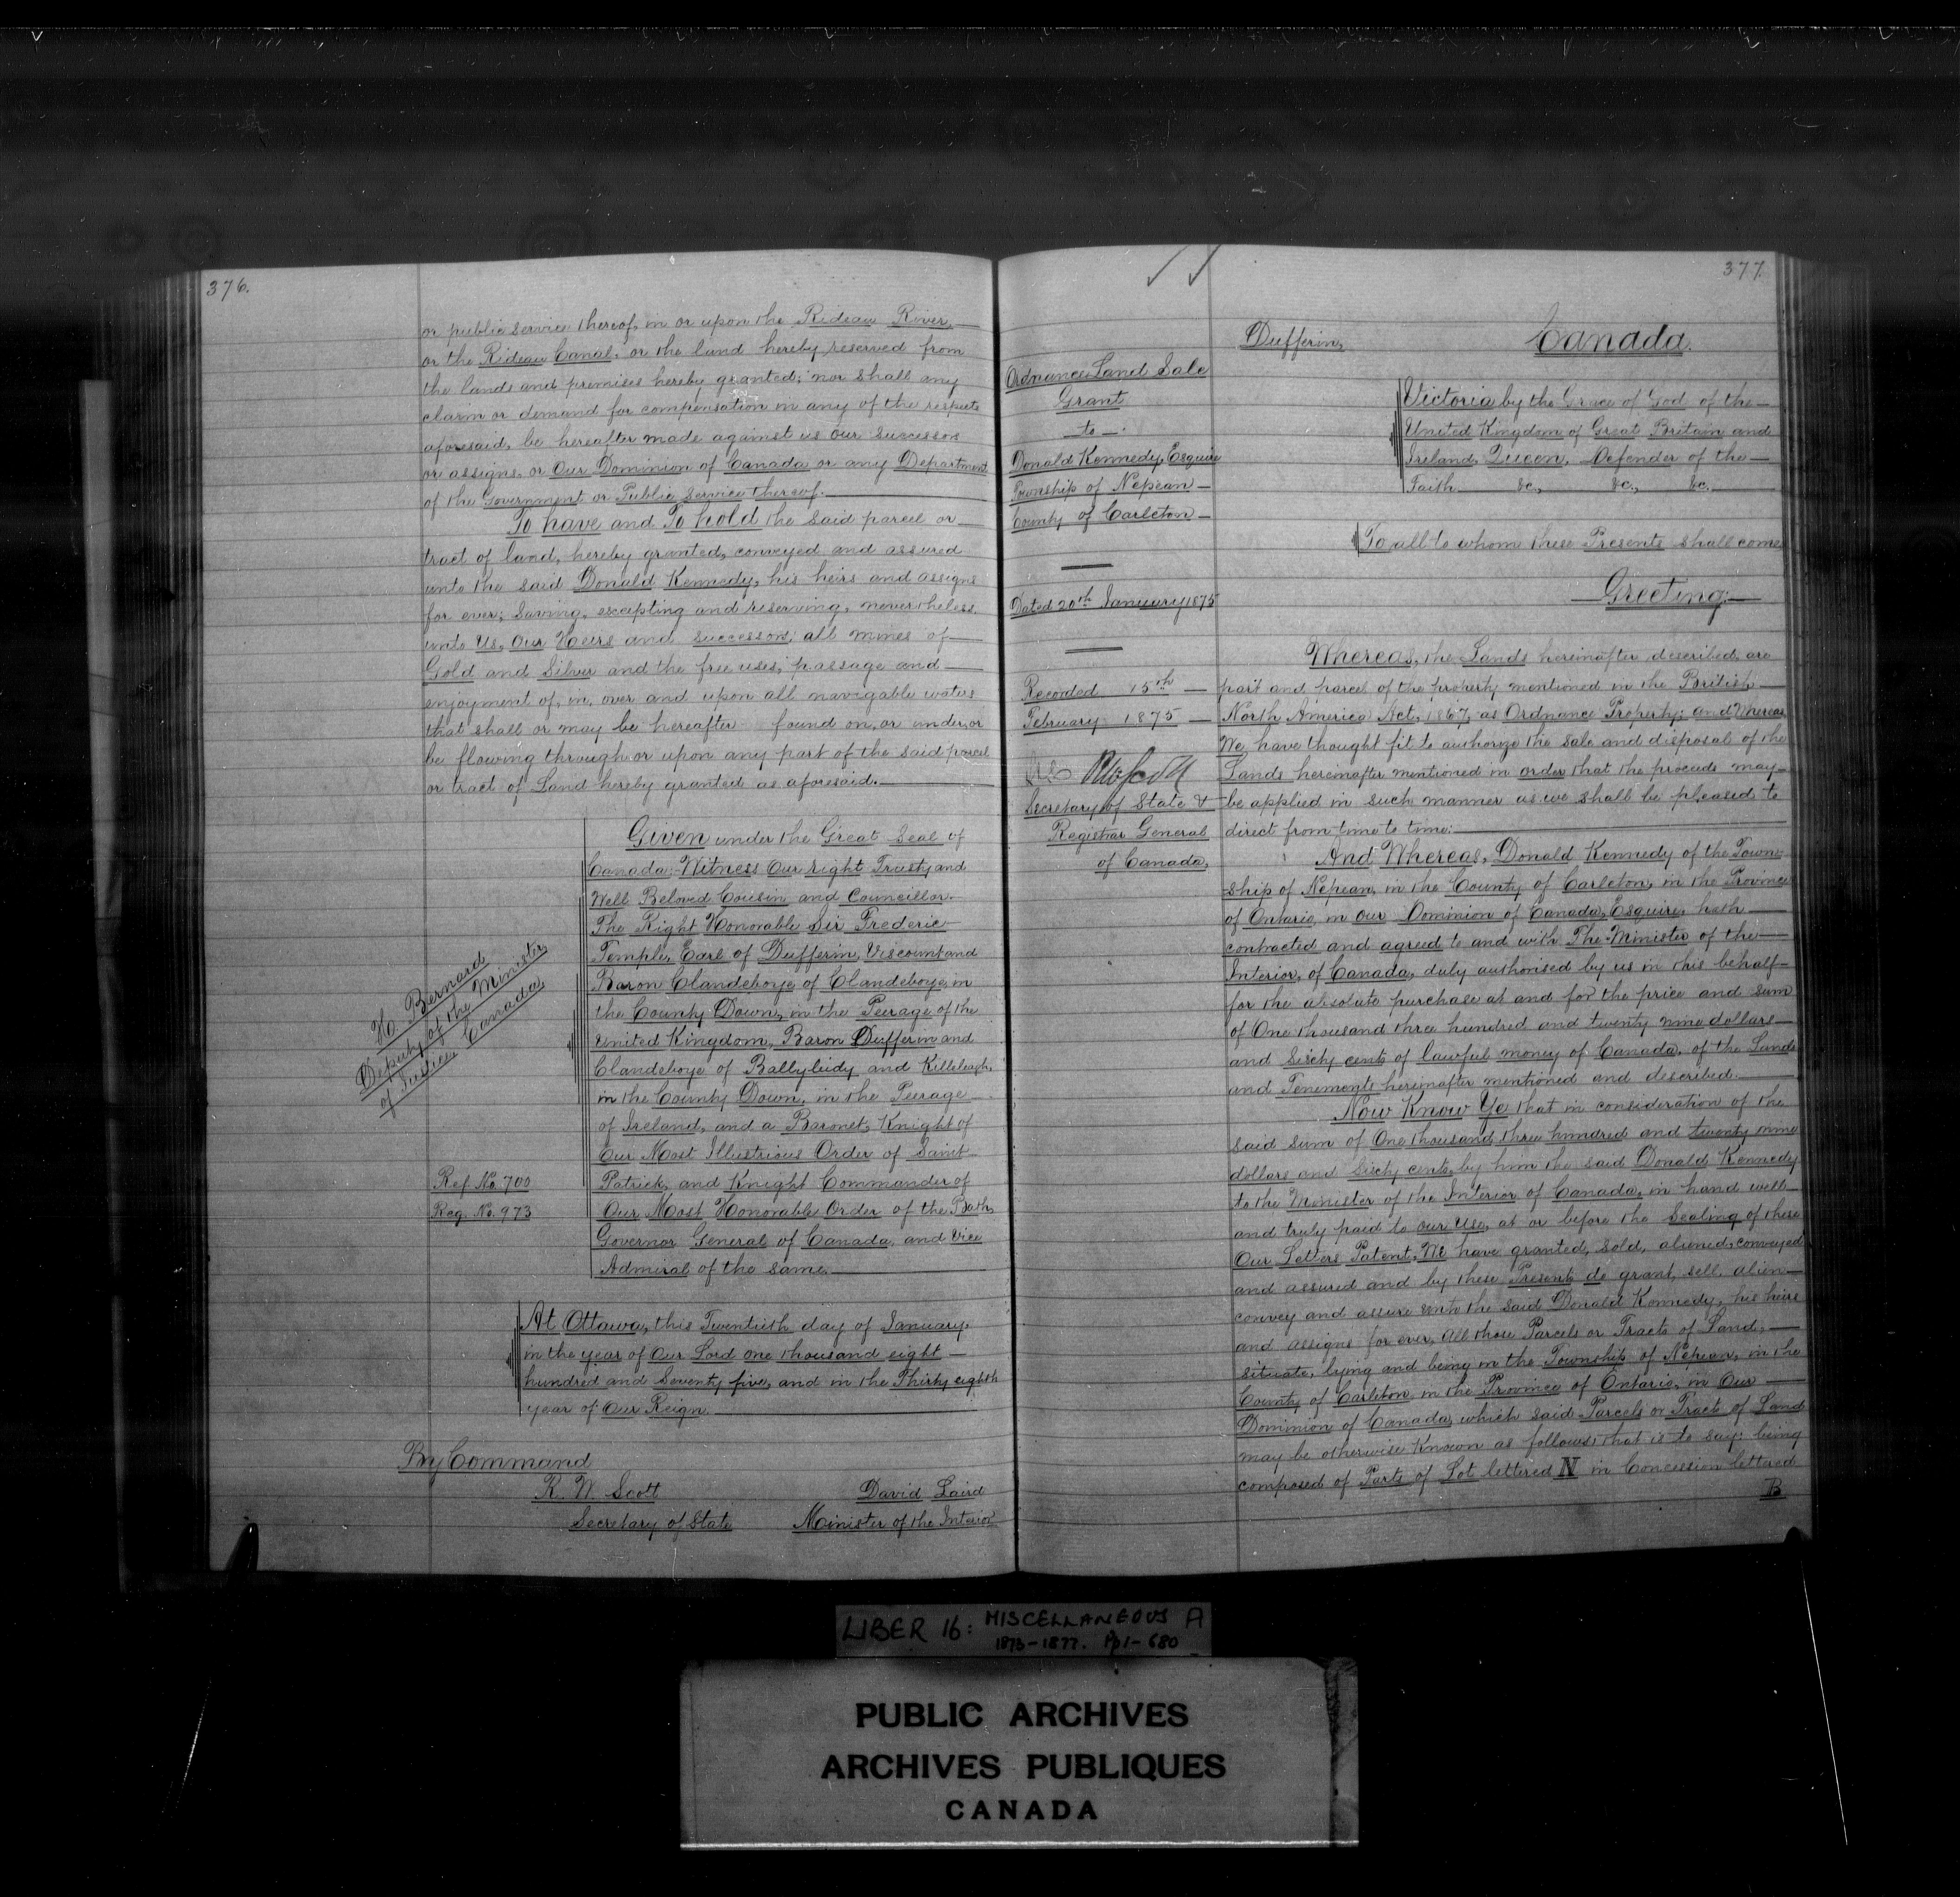 376.
or public service thereof, in or upon the Rideau River,
or the Rideau Canal, or the land hereby reserved from
the lands and premises hereby granted; nor shall any
claim or demand for compensation in any of the respects
aforesaid, be hereafter made against us our successors
or assigns, or Our Dominion of Canada or any Department
of the Government or Public Service thereof.
To have and To hold the said parcel or
tract of land, hereby granted, conveyed and assured
unto the said Donald Kennedy, his heirs and assigns
for ever; Saving, excepting and reserving, nevertheless,
unto Us, Our Heirs and Successors, all mines of
Gold and Silver and the free uses, passage and
enjoyment of, in, over and upon all navigable waters
that shall or may be hereafter found on, or under, or
be flowing through or upon any part of the said parcel
or tract of Land hereby granted as aforesaid.
Given under the Great Seal of
Canada; Witness Our right Trusty and
Well Beloved Cousin and Councillor.
The Right Honorable Sir Frederic
Temple, Earl of Dufferin, Viscount and
Baron Clandeboye of Clandeboye, in
the County Down, in the Peerage of the
United Kingdom, Baron Dufferin and
Clandeboye of Ballyleidy and Killeleagh,
in the County Down, in the Peerage
of Ireland, and a Baronet, Knight of
Our Most Illustrious Order of Saint
Patrick, and Knight Commander of
Our Most Honorable Order of the Bath,
Governor General of Canada, and Vice
Admiral of the same.
H. Bernard
Deputy of the Minister
of Justice, Canada,
Ref No. 700
Reg. No. 973
At Ottawa, this Twentieth day of January
in the year of Our Lord one thousand eight
hundred and Seventy five, and in the Thirty eighth
year of Our Reign.
By Command
R. W. Scott
Secretary of State
David Laird
Minister of the Interior
377.
Dufferin,
Canada.
Ordnance Land Sale
Grant
to
Donald Kennedy, Esquire
Township of Nepean
County of Carleton
Dated 20th January 1875
Recorded 15th
February 1875
RWScott
Secretary of State &
Registrar General
of Canada,
Victoria by the Grace of God of the
United Kingdom of Great Britain and
Ireland, Queen, Defender of the
Faith &c., &c., &c.
To all to whom these Presents shall come
Greeting:
Whereas, the Lands hereinafter described, are
part and parcel of the property mentioned in the British
North America Act, 1867, as Ordnance Property; and Whereas
We have thought fit to authorize the sale and disposal of the
Lands hereinafter mentioned in order that the proceeds may
be applied in such manner as we shall be pleased to
direct from time to time:
And Whereas, Donald Kennedy of the Town-
ship of Nepean, in the County of Carleton, in the Province
of Ontario, in our Dominion of Canada, Esquire, hath
contracted and agreed to and with The Minister of the
Interior, of Canada, duly authorised by us in this behalf
for the absolute purchase at and for the price and sum
of One thousand three hundred and twenty nine dollars
and Sixty cents of lawful money of Canada, of the Lands
and Tenements hereinafter mentioned and described.
Now Know Ye that in consideration of the
said sum of One thousand three hundred and twenty nine
dollars and Sixty cents, by him the said Donald Kennedy
to the Minister of the Interior of Canada, in hand well
and truly paid to our Use, at or before the Sealing of these
Our Letters Patent, We have granted, sold, aliened, conveyed
and assured and by these Presents do grant, sell, alien
convey and assure unto the said Donald Kennedy, his heirs
and assigns for ever, All those Parcels or Tracts of Land,
situate, lying and being in the Township of Nepean, in the
County of Carleton in the Province of Ontario, in Our
Dominion of Canada, which said Parcels or Tract of Land
may be otherwise Known as follows, that is to say: being
composed of Parts of Lot lettered N in Concession lettered
B
LIBER 16: MISCELLANEOUS A
1873-1877. Pp 1-680
PUBLIC ARCHIVES
ARCHIVES PUBLIQUES
CANADA